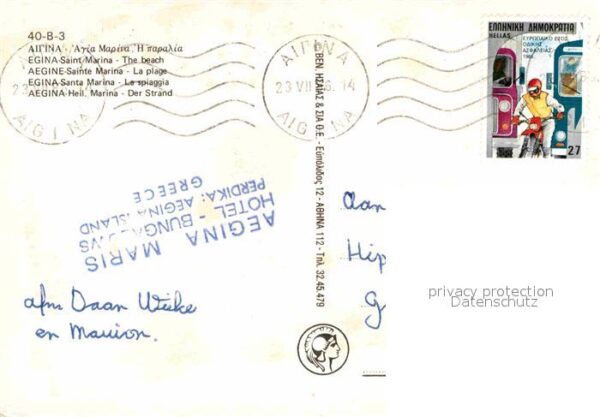 40-B-3
ΑΙΓΙΝΑ - Ἁγία Μαρίνα Ἡ παραλία
EGINA-Saint Marina - The beach
AEGINE-Sainte Marina - La plage
EGINA-Santa Marina - La spiaggia
AEGINA-Heil. Marina - Der Strand
ΑΙΓΙΝΑ
23 VII
14
AIGINA
AIGINA
ΕΛΛΗΝΙΚΗ ΔΗΜΟΚΡΑΤΙΑ
HELLAS
ΕΥΡΩΠΑΪΚΟ ΕΤΟΣ
ΟΔΙΚΗΣ
ΑΣΦΑΛΕΙΑΣ
1986
27
ΒΕΝ. ΗΣΑΪΑΣ & ΣΙΑ Ο.Ε. - Ευπόλιδος 12 - ΑΘΗΝΑ 112 - Τηλ. 32.45.479
AEGINA MARIS
HOTEL - BUNGALOWS
PERDIKA: AEGINA ISLAND
GREECE
aan
Hip
G
afm Daan
en
privacy protection
Datenschutz